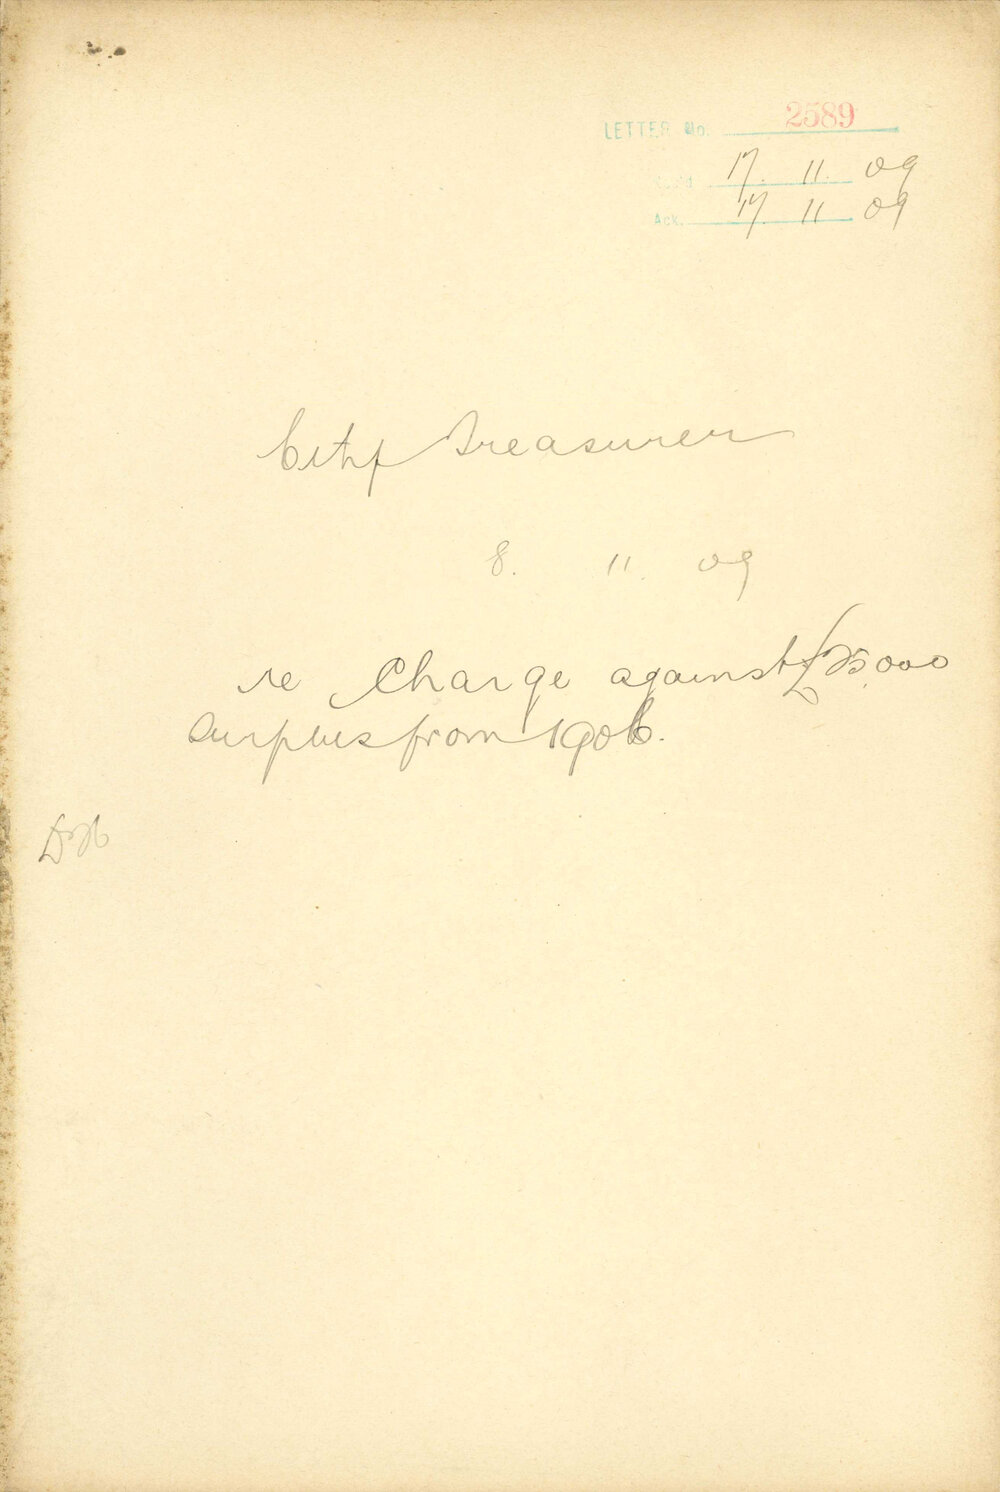 LETTER No. 2589
Rec'd 17. 11. 09
Ack. 17 11 09
City Treasurer
8. 11. 09
re Charge against £25,000
surplus from 1906.